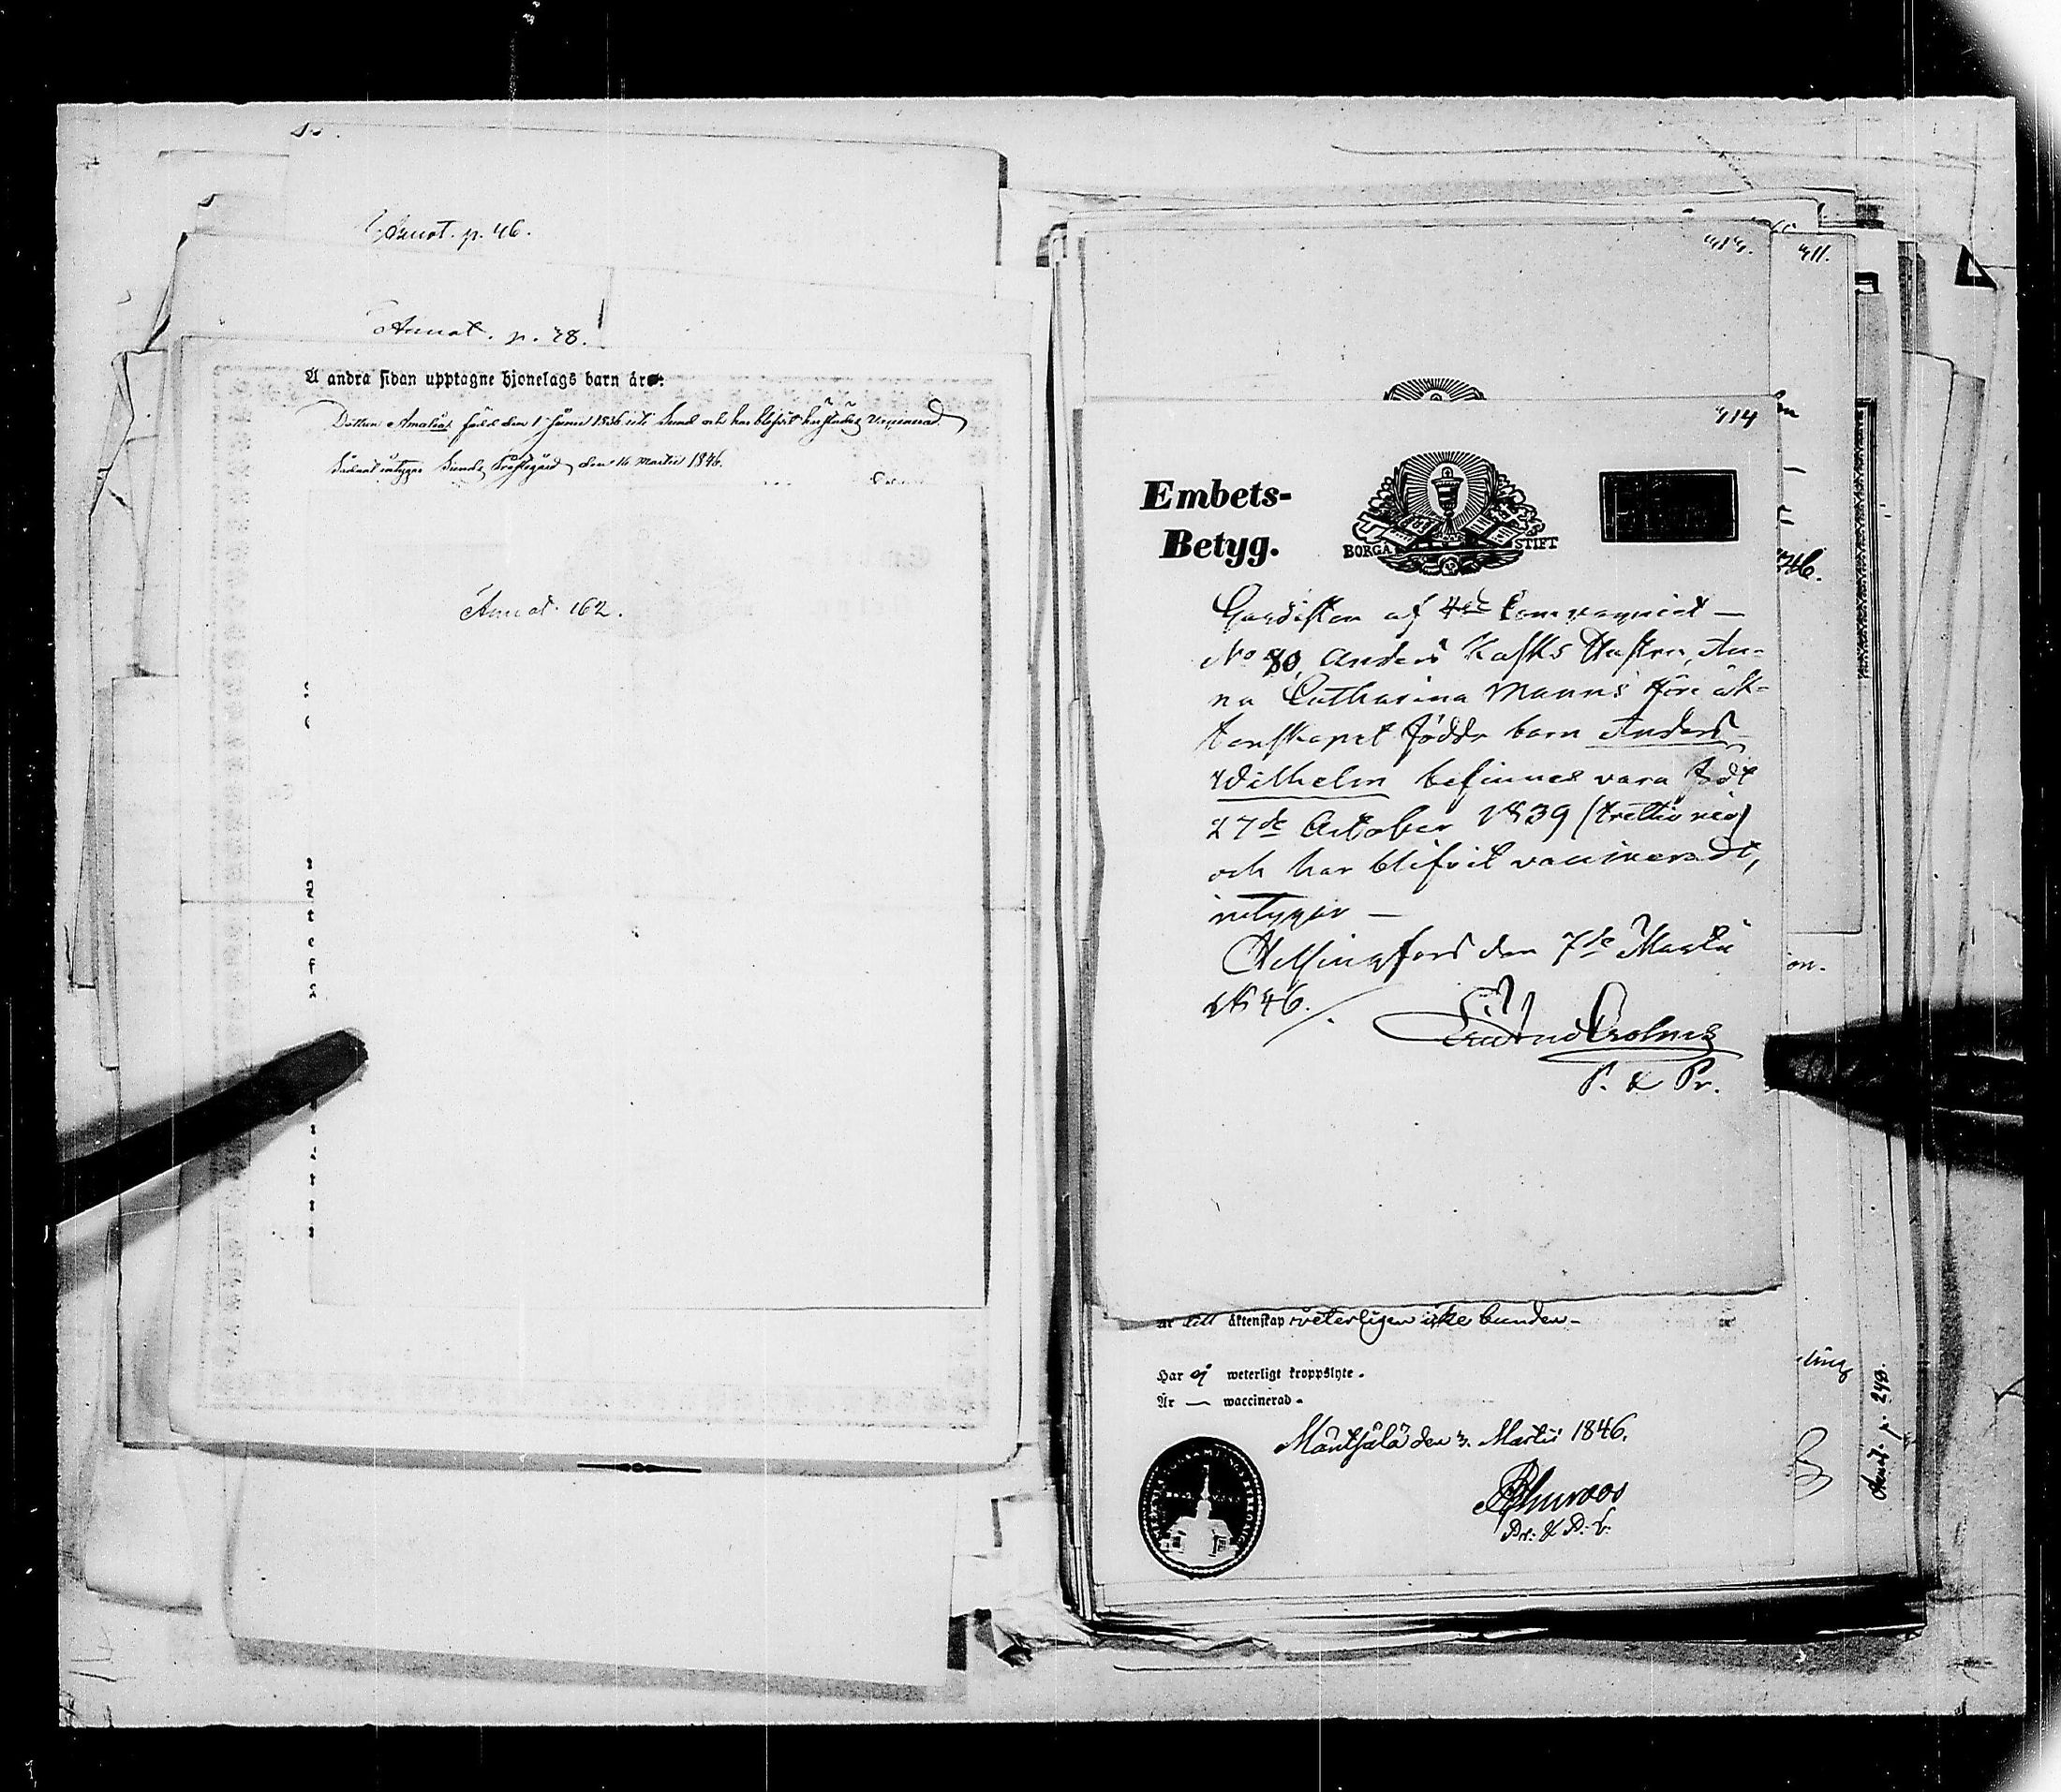 Annot. p. 46.
Annot. p. 48.
Å andra sidan upptagne hjonelags barn äro:
Dottren Amalia, född den 1 Junii 1836 uti Lund och har blifvit vaccinerad
Sådant intygar Prästgård den 16 Martii 1846.
Annot. 162.
413.
411.
414
Embets-
Betyg.
BORGÅ STIFT
Gardisten af 4de Compagniet —
No 80 Anders Kasks Hustru, An-
na Catharina Manns före äk-
tenskapet födde barn Anders
Wilhelm befinnes vara född
27de October 1839 (trettio nio)
och har blifvit vaccineradt,
intygar —
Helsingfors den 7de Martii
1846.
P. & Pr.
är till äktenskap veterligen icke bunden -
Har ej weterligt kroppslyte.
Är — waccinerad.
Mäntsälä den 3. Martii 1846.
46.
on.
ling
Annot. p. 248.